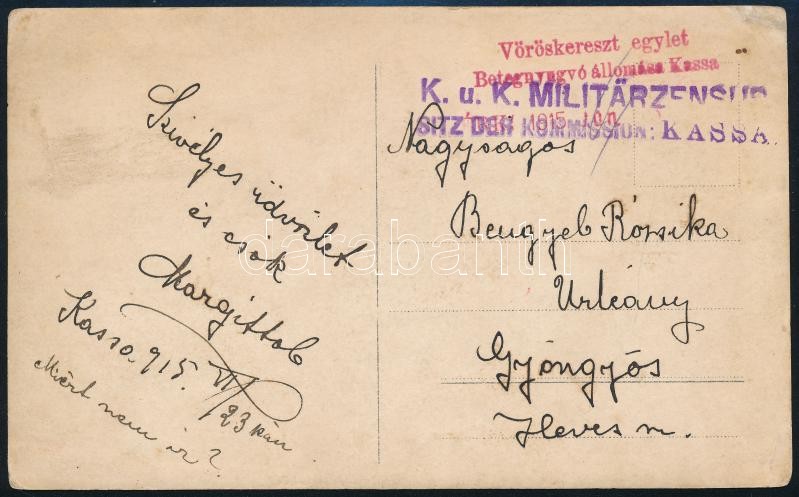 Vöröskereszt egylet
Betegnyugvó állomása Kassa
K. u. K. MILITÄRZENSUR
1915 jún
SITZ DER KOMMISSION: KASSA.
Szivélyes üdvözlet
és csók
Margittól
Kassa. 915. VI/23 kán
Miért nem ir?
Nagyságos
Rózsika
Urleány
Gyöngyös
Heves m.
darabanth